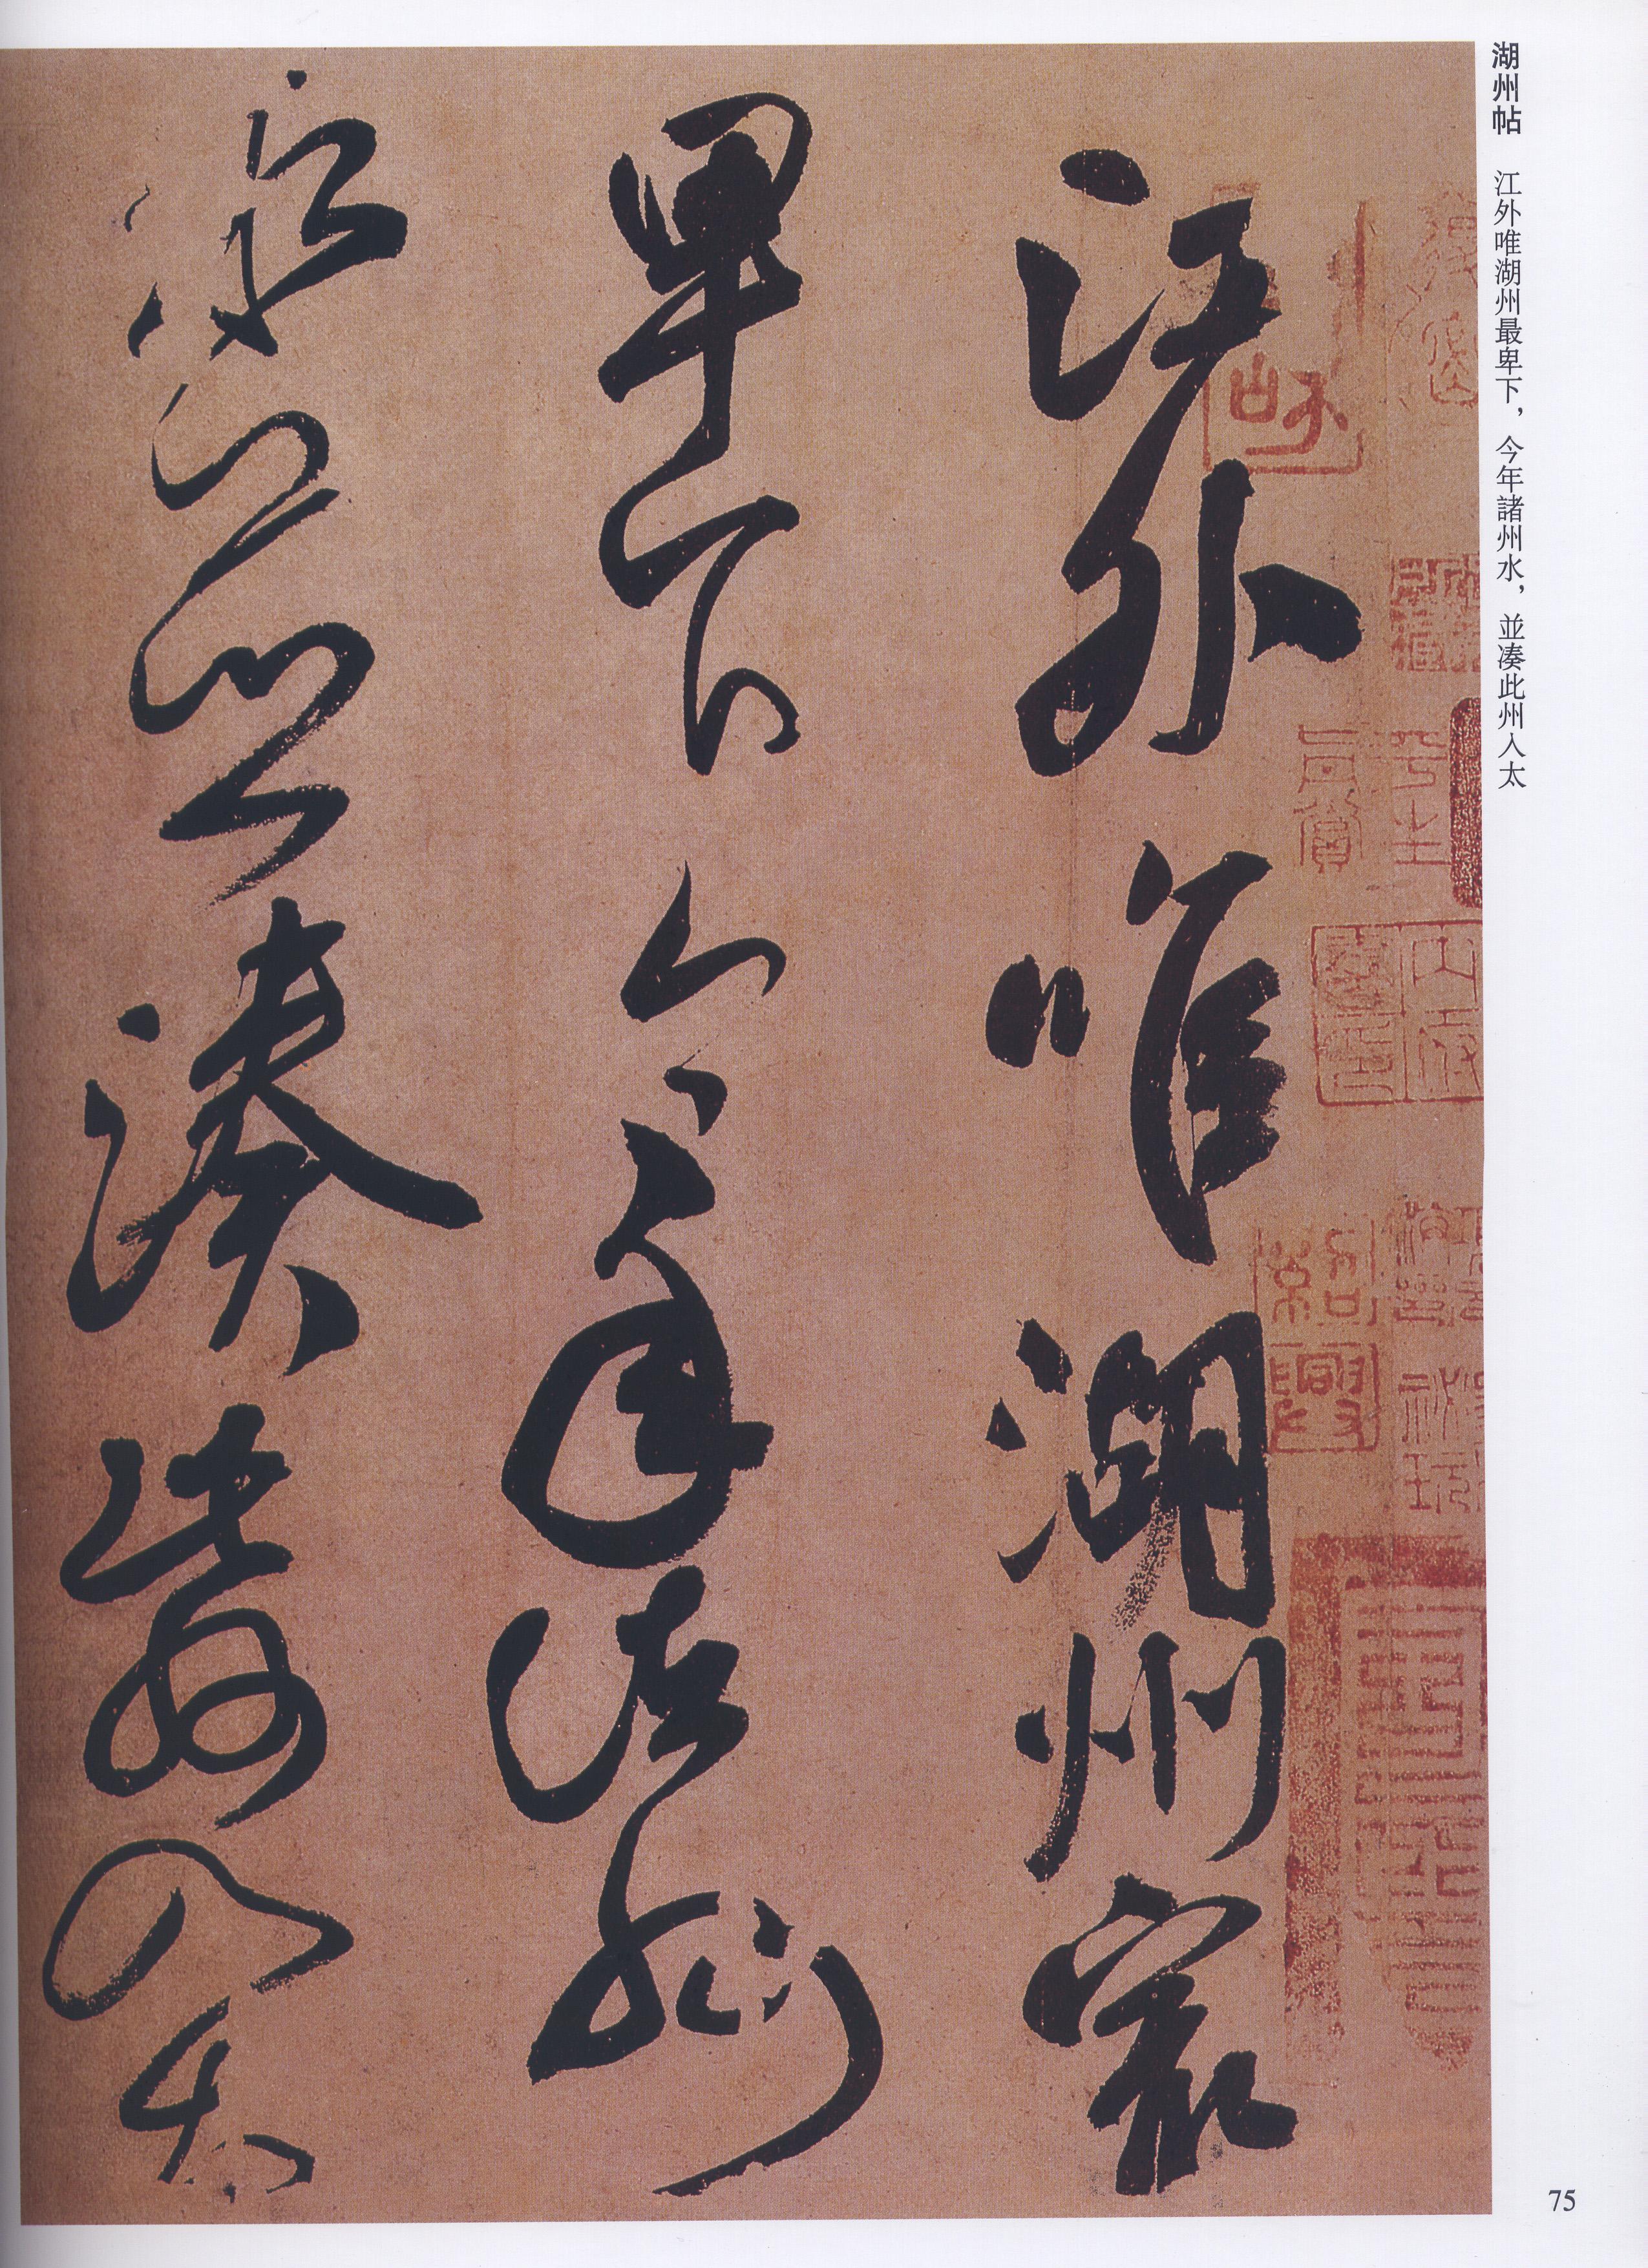 湖州帖　江外唯湖州最卑下，今年諸州水，並湊此州入太
紹興
江外唯湖州冣
卑下今年諸州
水並湊此州入太
75